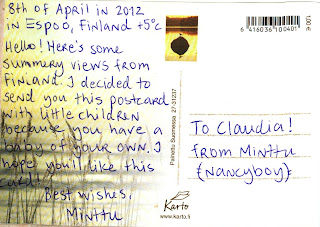 8th of April in 2012
in Espoo, Finland +5°C
Hello! Here's some
summery views from
Finland. I decided to
send you this postcard
with little children
because you have a
baby of your own. I
hope you'll like this
card!
Best wishes,
Minttu
6 416036 100401
Painettu Suomessa 27-31237
To Claudia!
from Minttu
(Nancyboy)
Karto
www.karto.fi